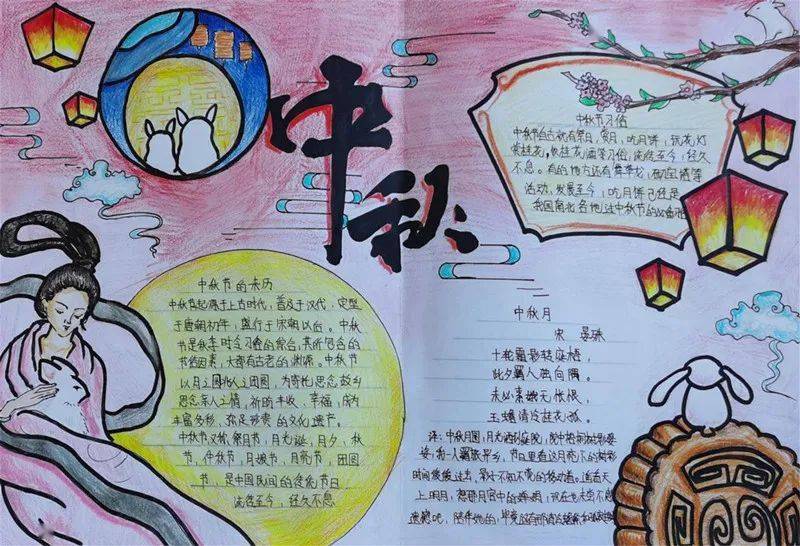 中秋
中秋节习俗
中秋节自古就有祭月、赏月、吃月饼、玩花灯
赏桂花、饮桂花酒等习俗,流传至今,经久
不息。有的地方还有舞草龙,砌宝塔等
活动。发展至今,吃月饼已经是
我国南北各地过中秋节的必备
中秋节的来历
中秋节起源于上古时代,普及于汉代,定型
于唐朝初年,盛行于宋朝以后。中秋
节是秋季时令习俗的综合,其所包含的
节俗因素,大都有古老的渊源。中秋节
以月之圆兆人之团圆,为寄托思念故乡
思念亲人之情,祈盼丰收、幸福,成为
丰富多彩、弥足珍贵的文化遗产。
中秋节又称祭月节、月光诞、月夕、秋
节、仲秋节、拜月节、月亮节、团圆
节,是中国民间的传统节日
流传至今,经久不息
中秋月
宋 晏殊
十轮霜影转庭梧,
此夕羁人独向隅。
未必素娥无怅恨,
玉蟾清冷桂花孤。
译:中秋月圆,月光洒向庭院,院中梧桐树影婆
娑,我一人羁旅异乡,节日里看这月亮下的树影
时间慢慢过去,影子不知不觉的移动着,遥看天
上明月,想那月宫中的嫦娥,现在也未尝不感
遗憾吧,陪伴她的,毕竟